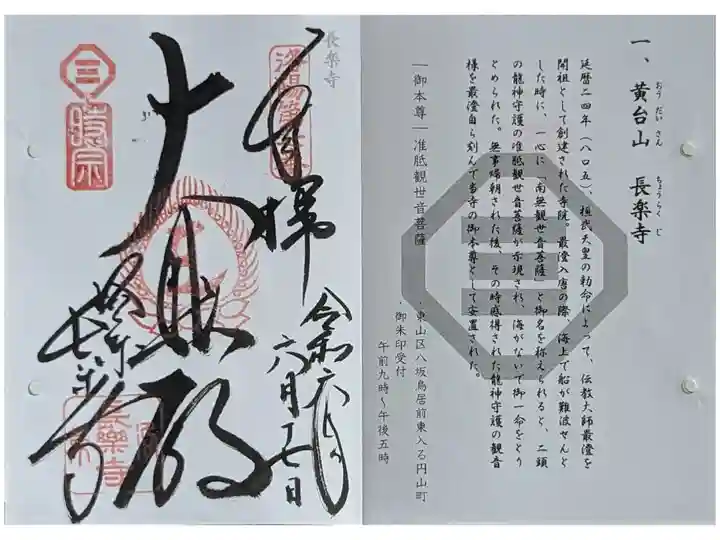 一、黄台山 長楽寺
おうだいさん ちょうらくじ
延暦二四年（八〇五）、桓武天皇の勅命によって、伝教大師最澄を
開祖として創建された寺院。最澄入唐の際、海上で船が難波せんと
した時に、一心に「南無観世音菩薩」と御名を称えられると、二頭
の龍神守護の准胝観世音菩薩が示現され、海がないで御一命をとり
とめられた。無事帰朝された後、その時感得された龍神守護の観音
様を最澄自ら刻んで当寺の御本尊として安置された。
―御本尊―准胝観世音菩薩
・東山区八坂鳥居前東入る円山町
・御朱印受付
午前九時～午後五時
長楽寺
奉拝
令和六年
六月二七日
大悲殿
長楽寺
時宗